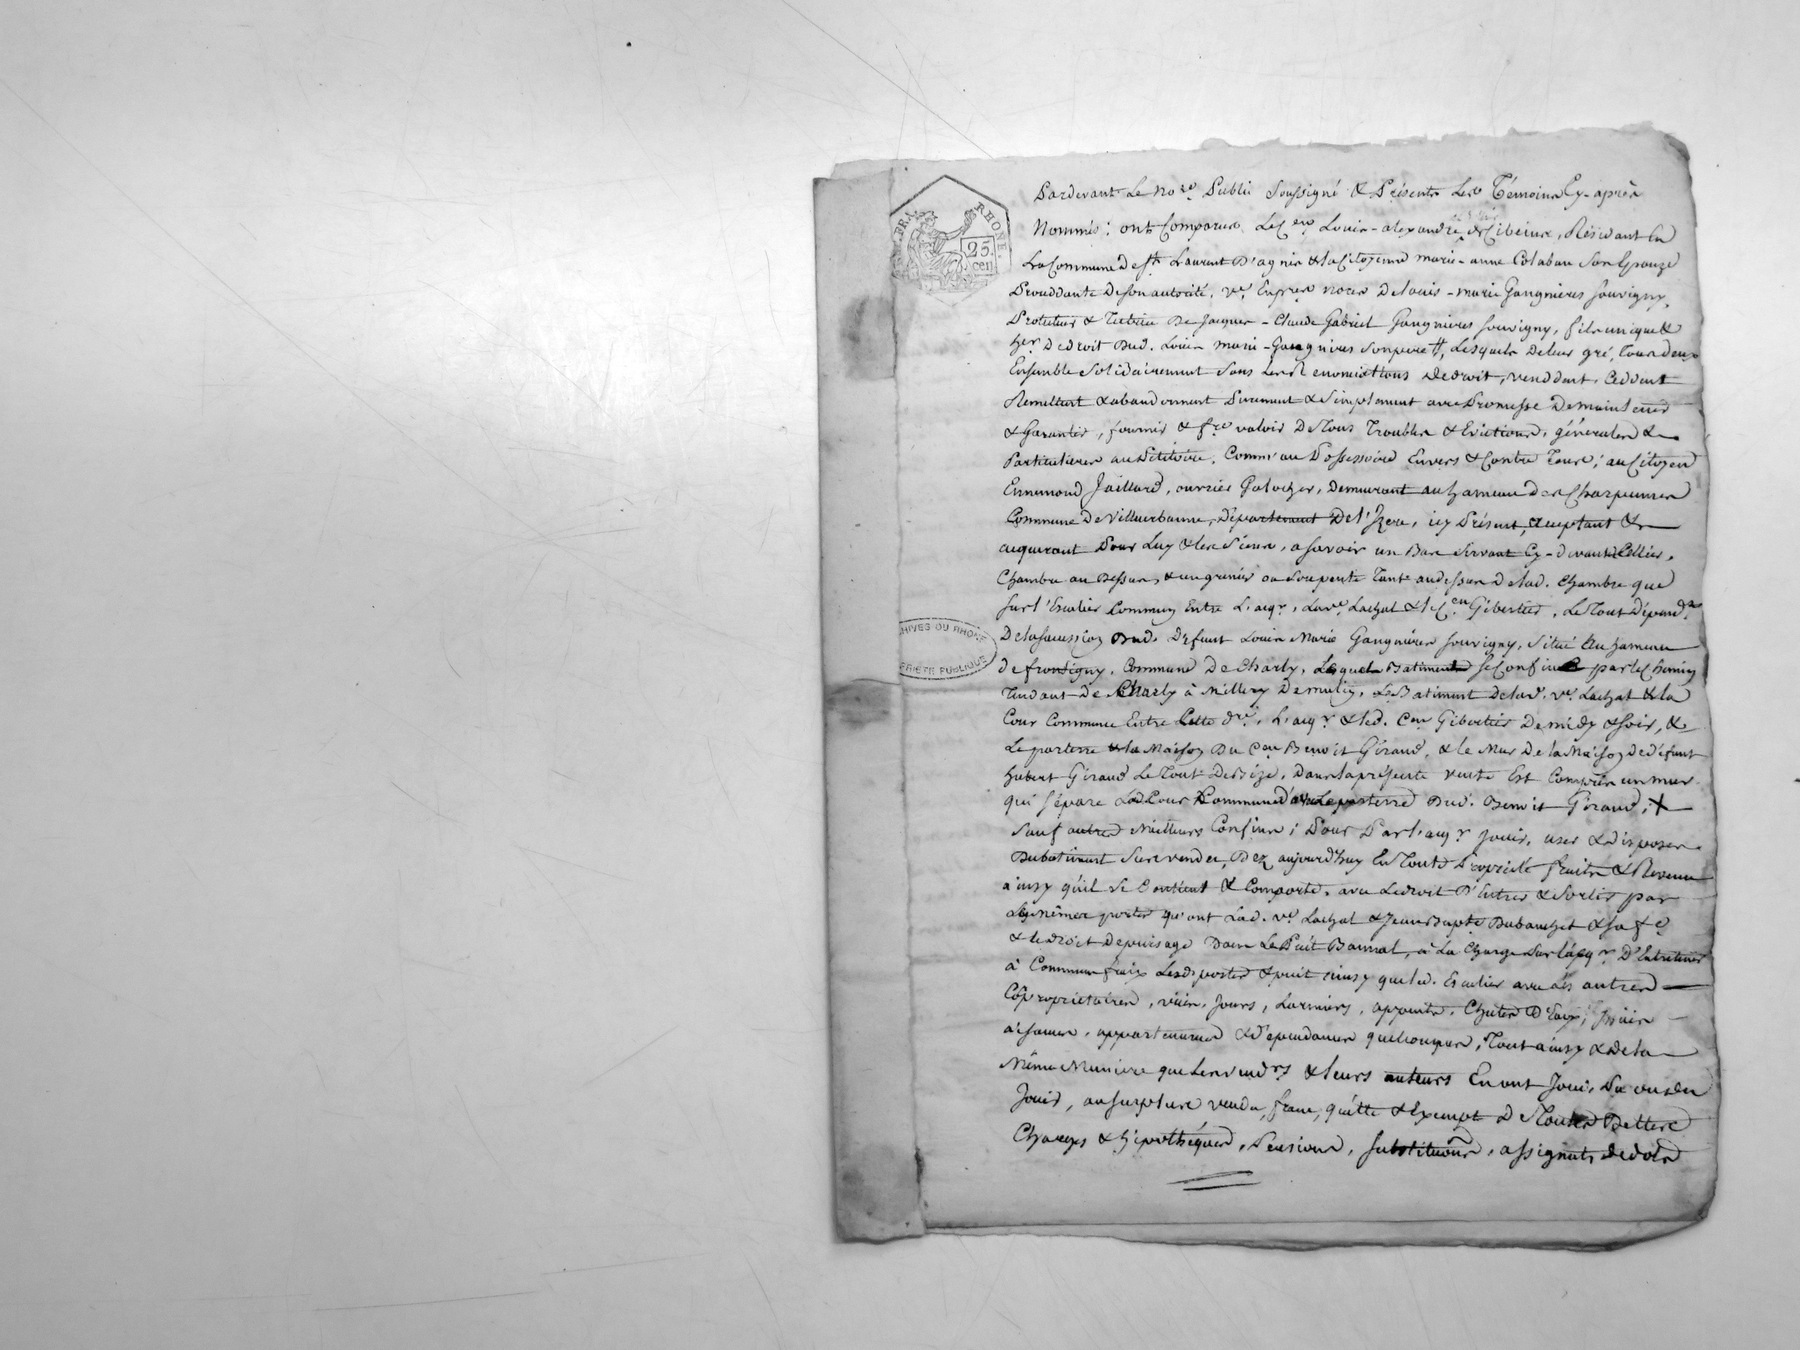 Pardevant Le No.re Public Soussigné & Présents Les Témoins Cy-après
Nommés; ont Comparus Le C.en Louis-alexandre de Cibeins, Résidant En
La Commune de St. Laurent D'agnis & la Citoyenne marie-anne Colabau Son Epouze
Proceddante de son autorité, v.e En p.res noces De Louis-marie Gangnieres souvigny,
Protuteur & Tutrice De Jacques-Claude Gabriel Gangnieres souvigny, fils unique &
her De droit Dud. Louis marie-Gangnieres Son pere, Lesquels De leur gré, Tous deux
Ensemble Solidairement Sous Les Renonciations De droit, venddent, Ceddent
Remettent & abandonnent Purement & Simplement avec Promesse De maintenir
& Garantir, fournir & f.re valoir De Tous Troubles & Evictions, générales &
Particulieres au Pétitoire, Comm'au Possessoire Envers & Contre Tous; au Citoyen
Ennemond Jaillard, ouvrier Galocher, Demeurant au hameau des Charpennes
Commune De Villeurbanne, Département De l'Izere, icy Présent, acceptant &
acquerant Pour Luy & les Siens, a savoir un Bas Servant Cy-devant de Cellier,
Chambre au Dessus, & un grenier ou Soupente Tant au dessus De lad. Chambre que
Sur l'Escalier Commun Entre L'acq.r, La v.e Lachat & le C.en Gibertier, Le Tout Dépend.t
De la Succession Dud. Defunt Louis Marie Gangnières souvigny, Situé Au hameau
de frontigny, Commune De Charly, Lequel Batiment Se Confine par le Chemin
Tendant De Charly à Millery De matin, Le Batiment De lad. v.e Lachat & la
Cour Commune Entre Cette d.re, L'acq.r & led. C.en Gibertier De midy & soir, &
Le parterre & la Maison Du C.en Benoit Giraud, & le Mur De la Maison De défunt
hubert Giraud Le Tout De Bize, Dans la présente vente Est Compris un mur
qui sépare Lad. Cour Commune d'avec Le parterre Dud. Benoit Giraud, X
Sauf autres Meilleurs Confins; Pour Par l'acq.r jouir, user & disposer
Du batiment Sus vendu, Dez aujourd'huy En Toute Propriété fruits & Revenus
ainsy qu'il Se Contient & Comporte, avec Le droit D'Entrer & Sortir par
Les mêmes portes qu'ont Lad. v.e Lachat & Jean Bapte Dubouchet & sa f.e
& le droit De puisage Dans Le Puit Bannal, à La Charge Par l'acq.r D'Entretenir
à Communs fraix Lesd. portes & puit ainsy que led. Escalier avec Les autres
Coproprietaires, vües, Jours, Larmiers, appents, Chutes D'Eaux,
aisances, appartenances & Dépendances quelconques, Tout ainsy & de la
Même Maniere que Les vend.rs & leurs auteurs En ont Joui, Du ou Deu
Jouir, au surplus vendu, franc, quitte & Exempt De Toutes Dettes
Charges & hipothéques, Pensions, substituõns, assignats de dots
BRA. RHONE.
25.
cen
CHIVES DU RHÔNE
PRIÉTÉ PUBLIQUE